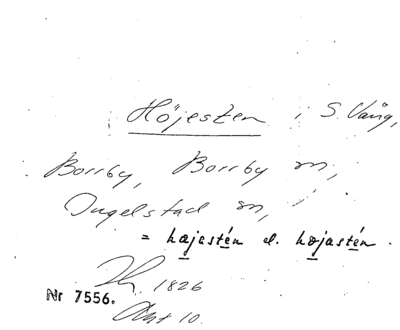 Höjesten i S. Vång,
Borrby, Borrby sn,
Ingelstad sn,
= højastén el. højastén.
1826
Nr 7556.
Akt 10.